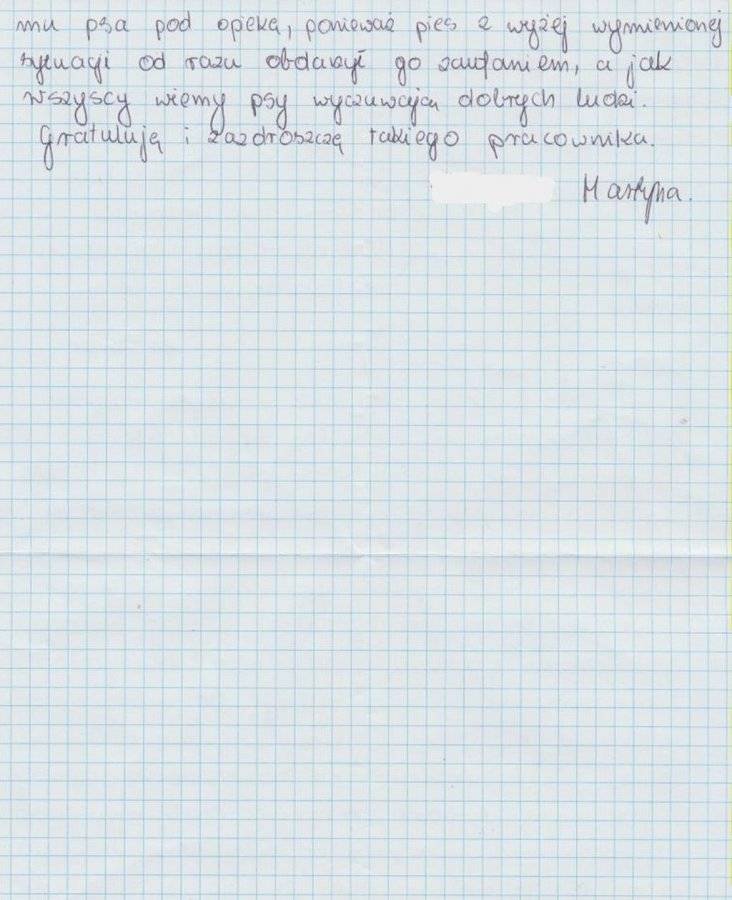 mu psa pod opieką, ponieważ pies z wyżej wymienionej
sytuacji od razu obdarzył go zaufaniem, a jak
wszyscy wiemy psy wyczuwają dobrych ludzi.
Gratuluję i zazdroszczę takiego pracownika.
Martyna.